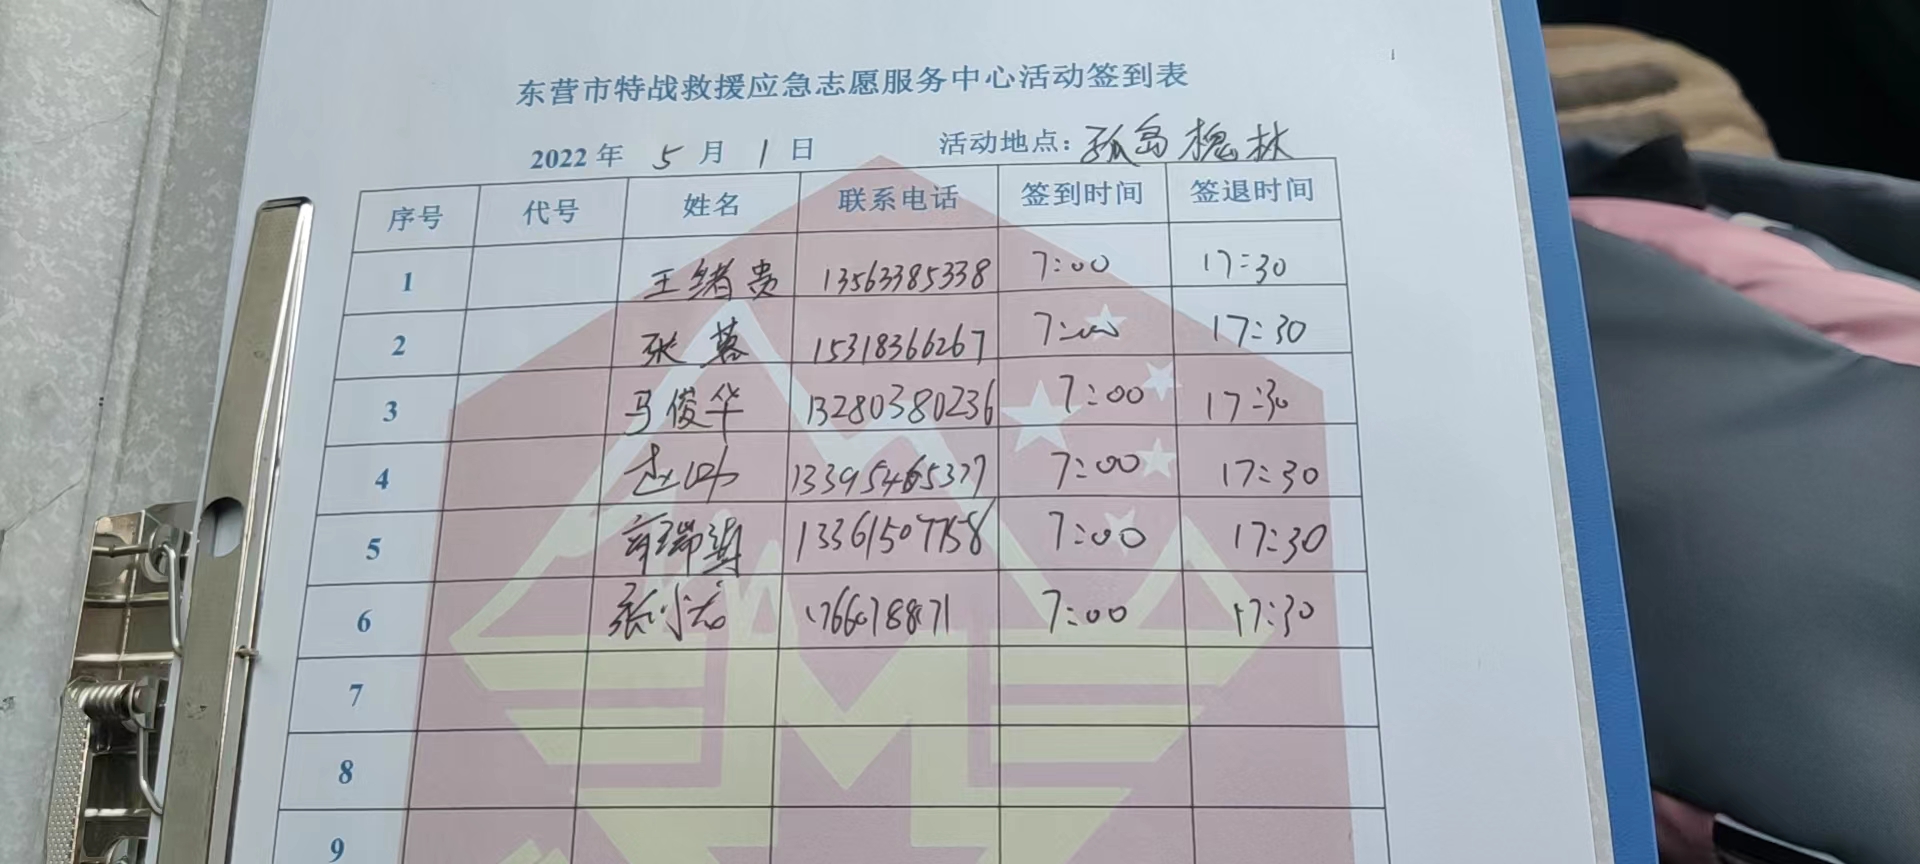 东营市特战救援应急志愿服务中心活动签到表
2022年 5 月 1 日 活动地点：孤岛槐林
序号 代号 姓名 联系电话 签到时间 签退时间
1 王绪贵 13563385338 7:00 17:30
2 张蓉 15318366267 7:00 17:30
3 马俊华 13280380236 7:00 17:30
4 13395465377 7:00 17:30
5 7:00 17:30
6 张小龙 7:00 17:30
7
8
9